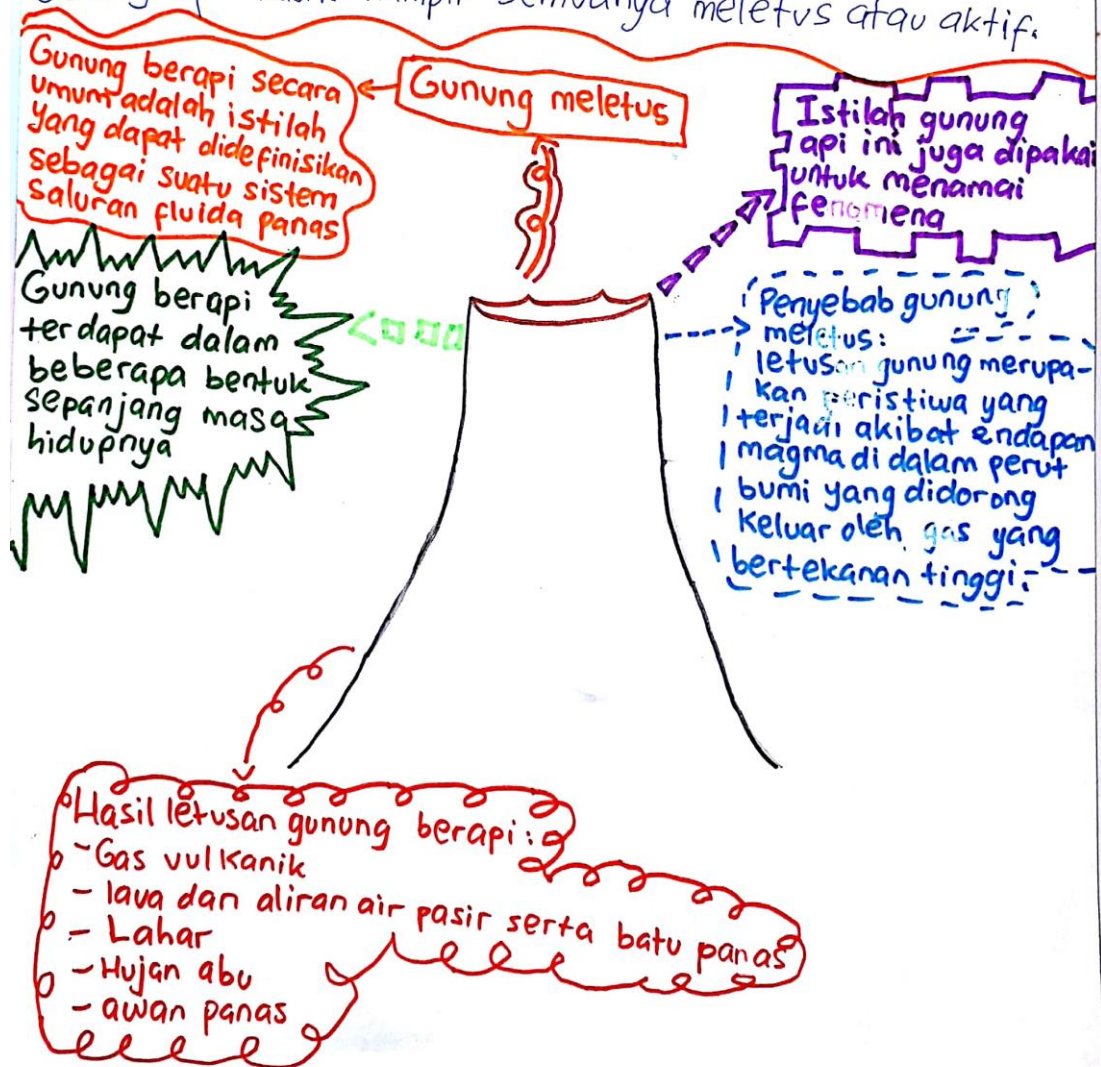 semuanya meletus atau aktif.
Gunung meletus
Gunung berapi secara
umum adalah istilah
yang dapat didefinisikan
sebagai suatu sistem
saluran fluida panas
Istilah gunung
api ini juga dipakai
untuk menamai
fenomena
Gunung berapi
terdapat dalam
beberapa bentuk
sepanjang masa
hidupnya
Penyebab gunung
meletus:
letusan gunung merupa-
kan peristiwa yang
terjadi akibat endapan
magma di dalam perut
bumi yang didorong
keluar oleh gas yang
bertekanan tinggi.
Hasil letusan gunung berapi:
- Gas vulkanik
- lava dan aliran air pasir serta batu panas
- Lahar
- Hujan abu
- awan panas